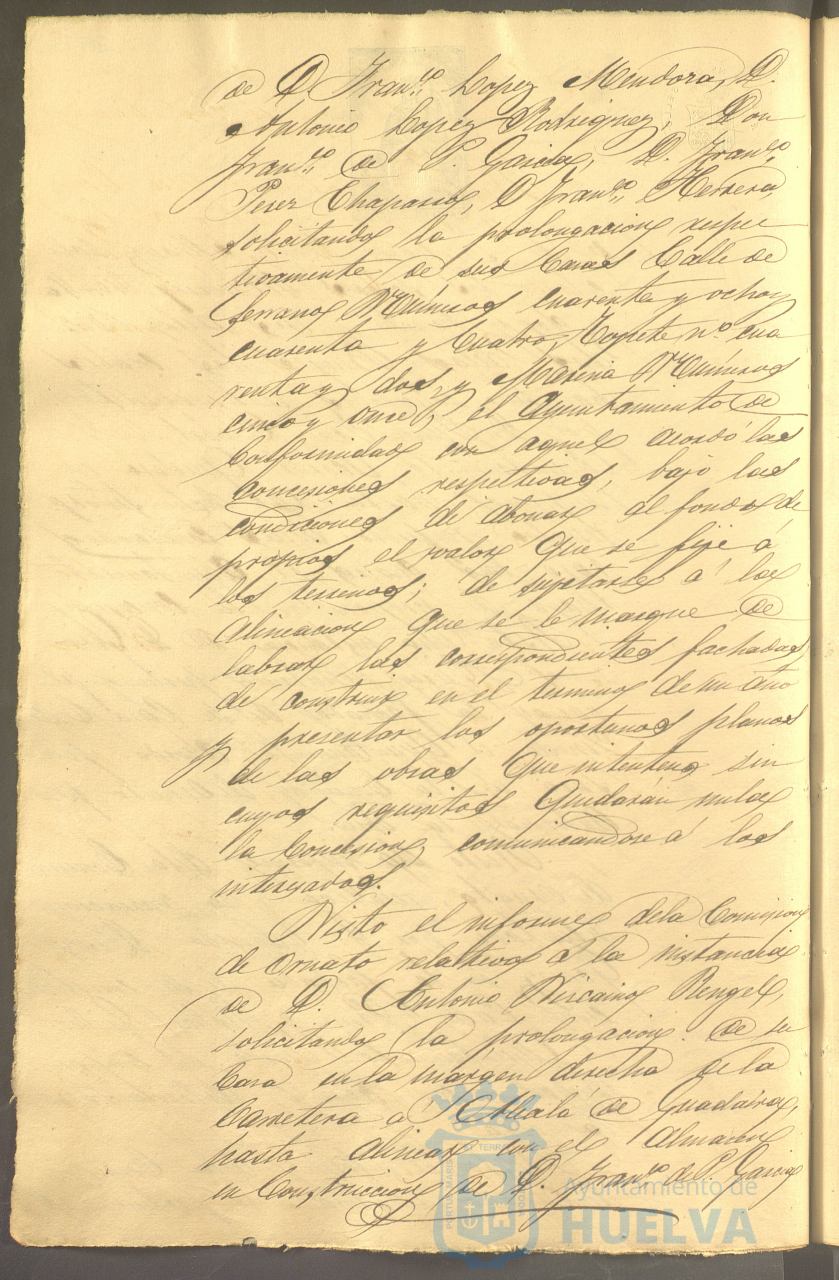 de D Fran.co Lopez Mendoza, D.
Antonio Lopez Rodriguez, Don
Fran.co de P. Garcia, D. Fran.co
Perez Chaparro, D Fran.co Herrera,
solicitando la prolongacion respec
tivamente de sus Casas Calle de
Serrano Números cuarenta y ocho y
cuarenta y Cuatro, Topete n.o cua
renta y dos, y Marina Números
cinco y once, el Ayuntamiento de
Conformidad con aquel acordó las
concesiones respectivas, bajo las
condiciones de abonar al fondo de
propios el valor que se fije á
los terrenos; de sujetarse á la
alineacion que se le marque de
labrar las correspondientes fachadas
de construir en el termino de un año
y presentar los oportunos planos
de las obras que intenten sin
cuyos requisitos quedarán nulas
la Concesion, comunicandose á los
interesados.
Visto el informe de la Comision
de Ornato relativo á la instancia
de D. Antonio Viscaino Rengel,
solicitando la prolongacion de su
Casa en la márgen derecha de la
Carretera a Alcalá de Guadaira,
hasta alinear con el almacen
en Construccion de D. Fran.co de P. Garcia
Ayuntamiento de
HUELVA